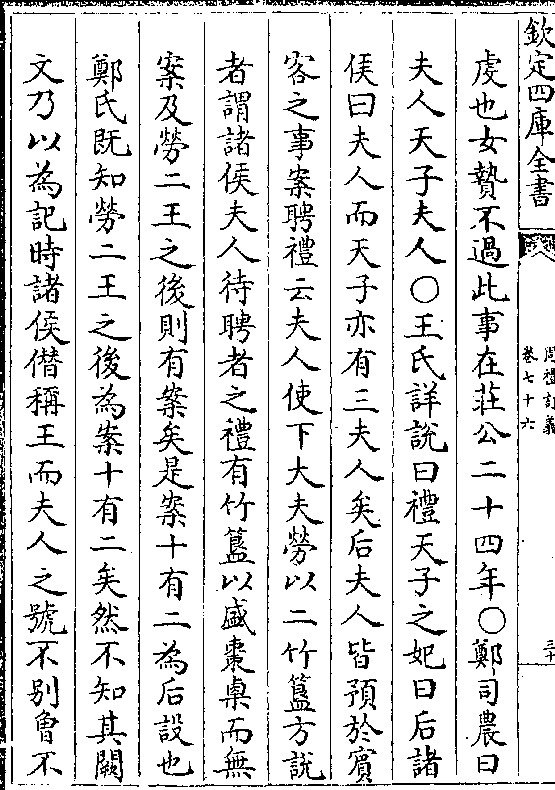 欽定四庫全書
周禮訂義
卷七十六
二十
虔也女贄不過此事在莊公二十四年○鄭司農曰
夫人天子夫人○王氏詳說曰禮天子之妃曰后諸
侯曰夫人而天子亦有三夫人矣后夫人皆預於賓
客之事案聘禮云夫人使下大夫勞以二竹簠方說
者謂諸侯夫人待聘者之禮有竹簠以盛棗㮚而無
案及勞二王之後則有案矣是案十有二為后設也
鄭氏既知勞二王之後為案十有二矣然不知其闕
文乃以為記時諸侯僣稱王而夫人之號不别魯不